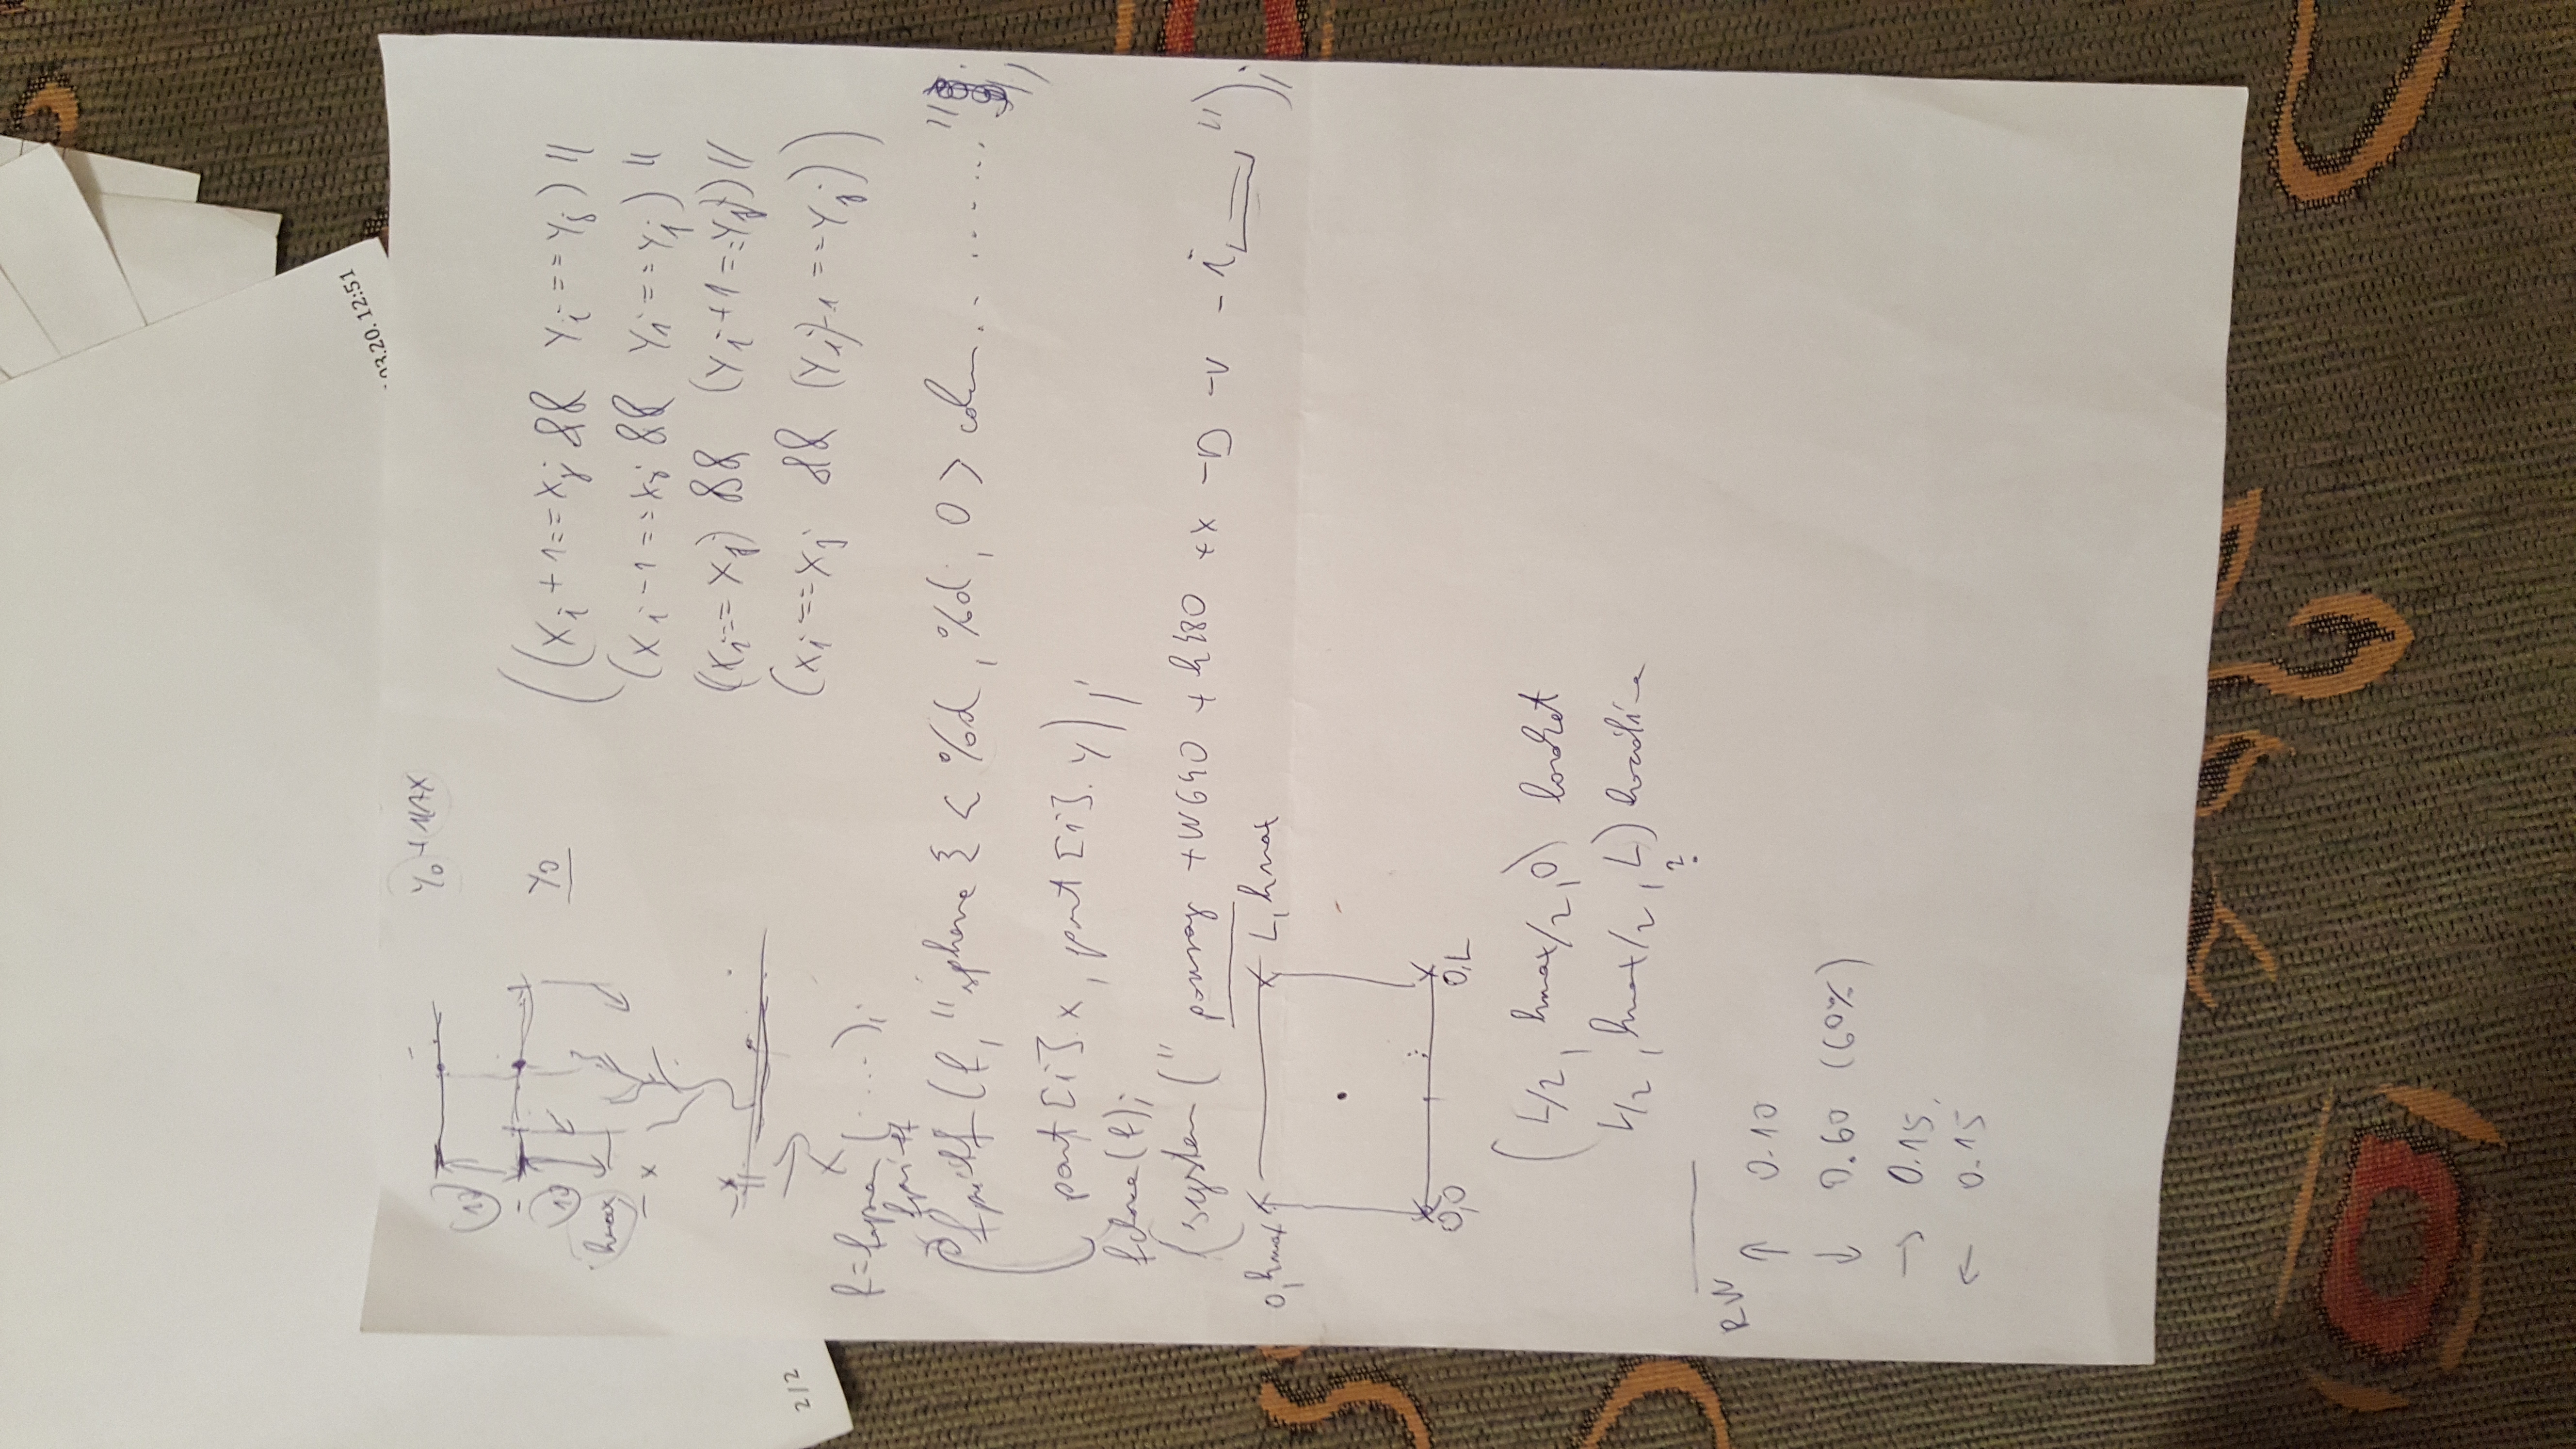 03.20. 12:51
2/2
Y0 + MAX
10
Y0
10
hmax
x
X
((Xi + 1 == Xj && Yi == Yj) ||
(Xi - 1 == Xj && Yi == Yj) ||
((Xi == Xj) && (Yi + 1 == Yj) ||
(Xi == Xj && (Yi) - 1 == Yj))
f = fopen(.....);
fprintf
fprintf (f, "sphere { < %d, %d, 0 > color.. ....... "
part[i].x, part[i].y);
fclose(f);
(system (" povray +W640 + h480 +x -D -V - i ");
0, hmax
L, hmax
0,0
0,L
(L/2, hmax/2, 0)
L/2, hmax/2, L)
?
RW
↑ 0.10
↓ 0.60 (60%)
→ 0.15
← 0.15